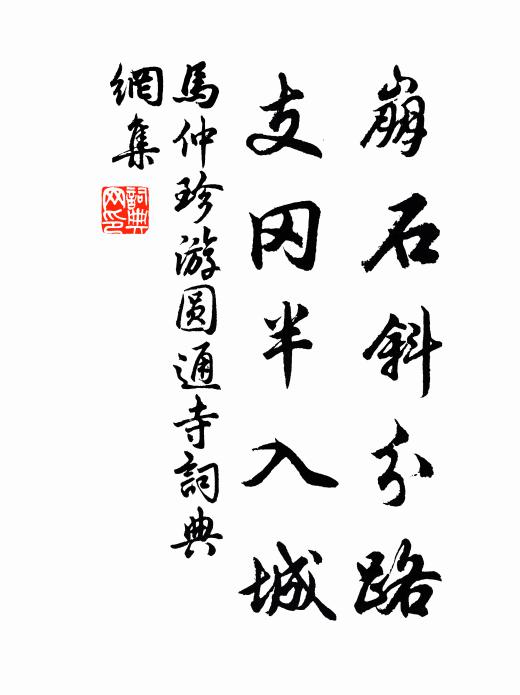 崩石斜分路
支冈半入城
馬仲珍游圓通寺詞典
網集
詞典
网印